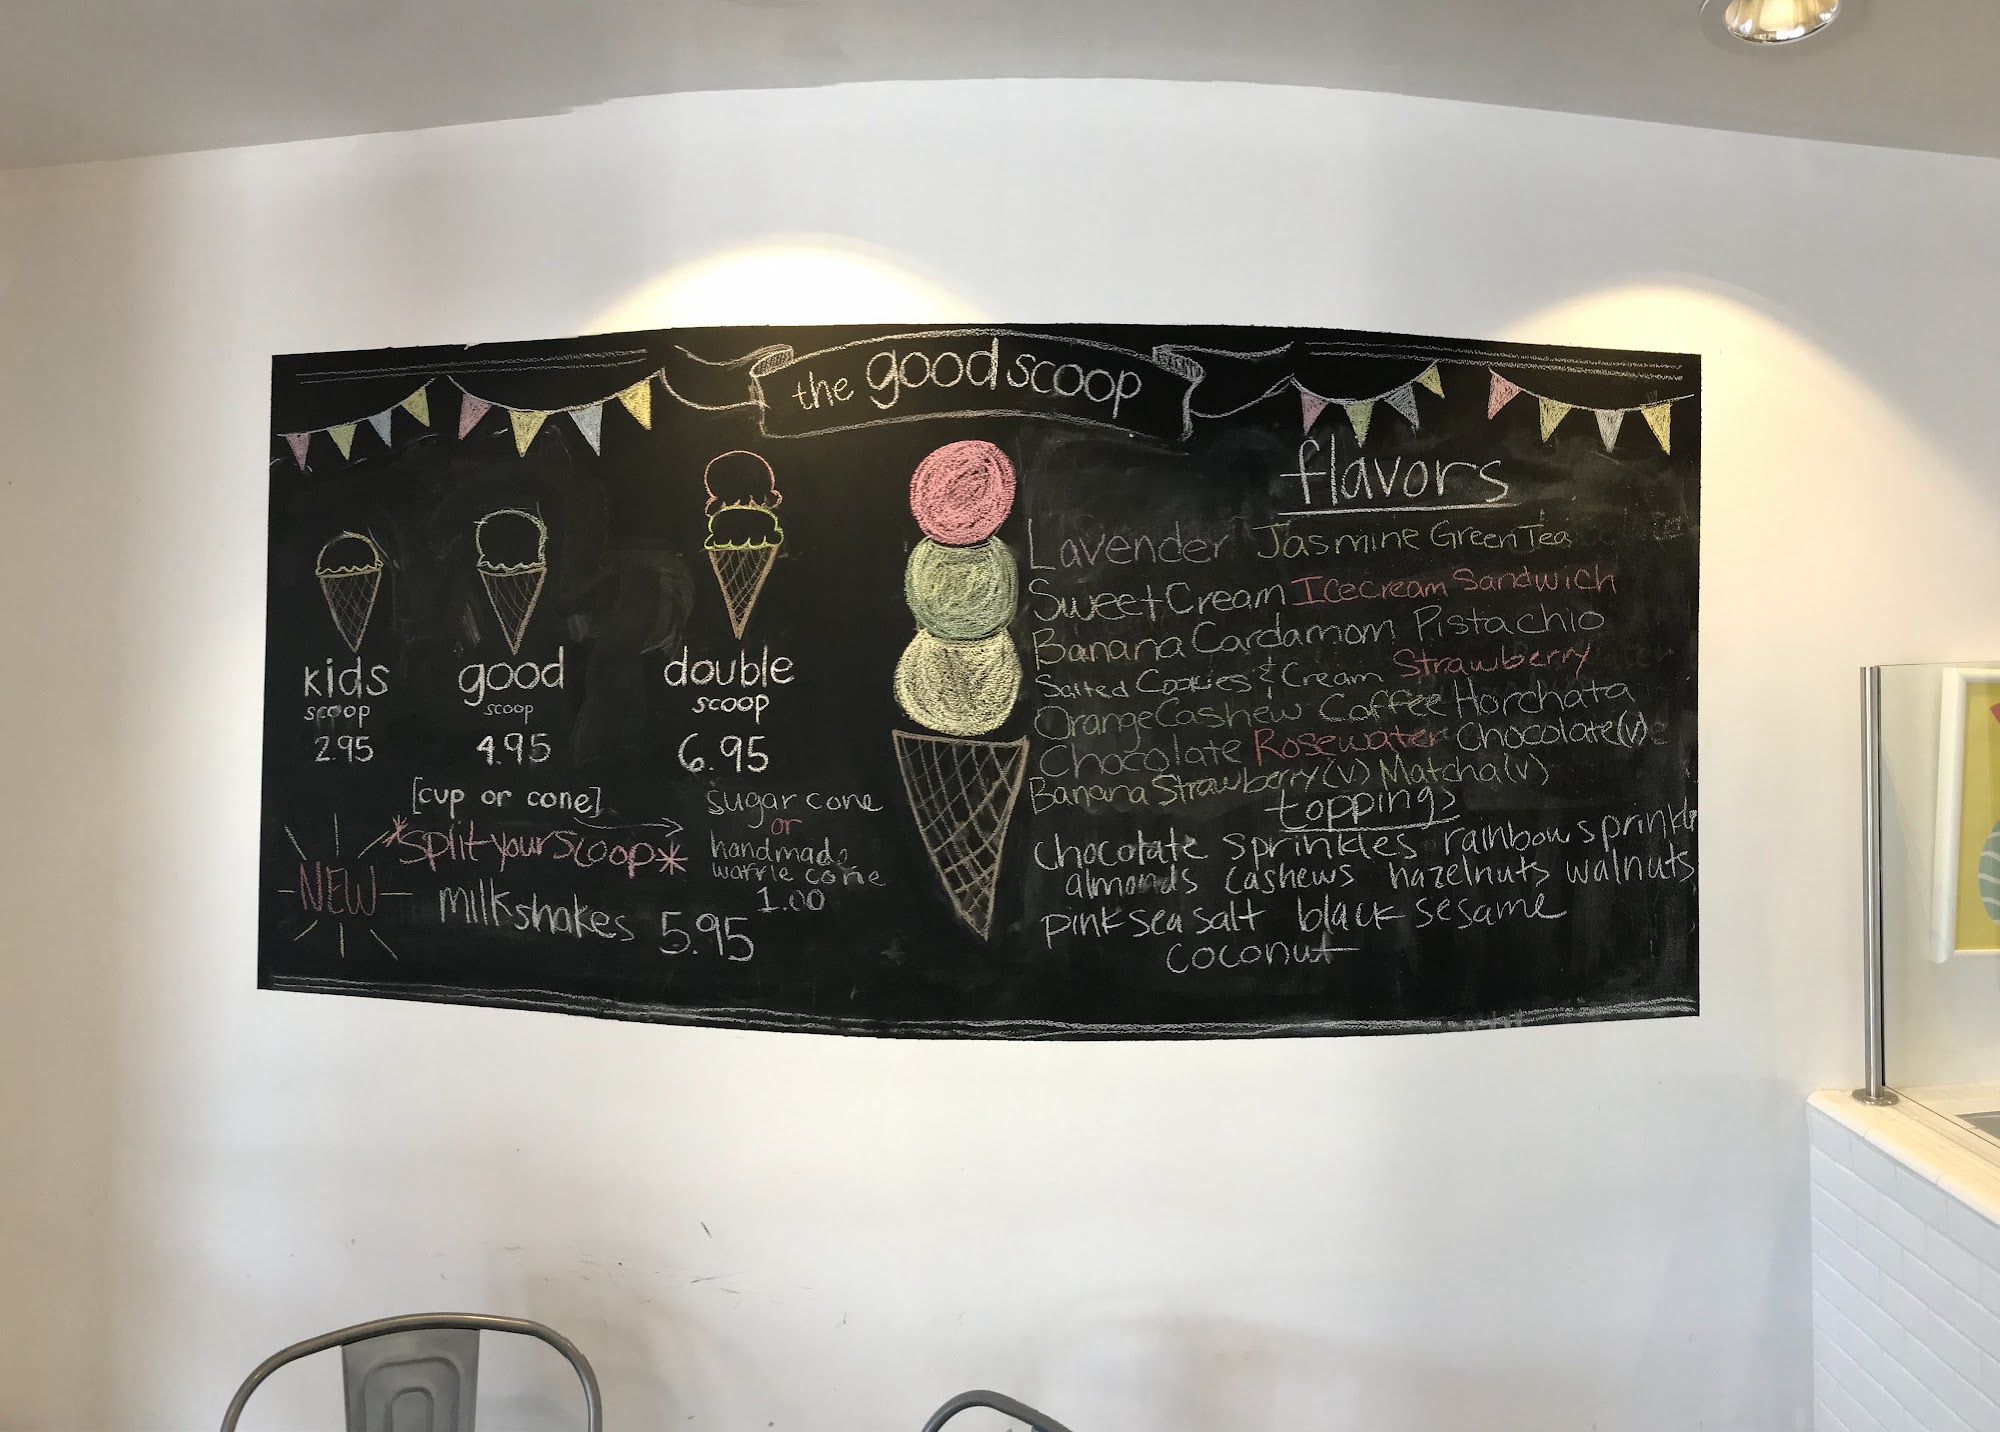 the good scoop
kids
scoop
2.95
good
scoop
4.95
double
scoop
6.95
[cup or cone]
sugar cone
or
handmade
waffle cone
1.00
*split your scoop*
NEW
milkshakes 5.95
flavors
Lavender Jasmine Green Tea
Sweet Cream Icecream Sandwich
Banana Cardamom Pistachio
Salted Cookies & Cream Strawberry
Orange Cashew Coffee Horchata
Chocolate Rosewater Chocolate(v)
Banana Strawberry(v) Matcha(v)
toppings
chocolate sprinkles rainbow sprinkle
almonds cashews hazelnuts walnuts
pink sea salt black sesame
coconut